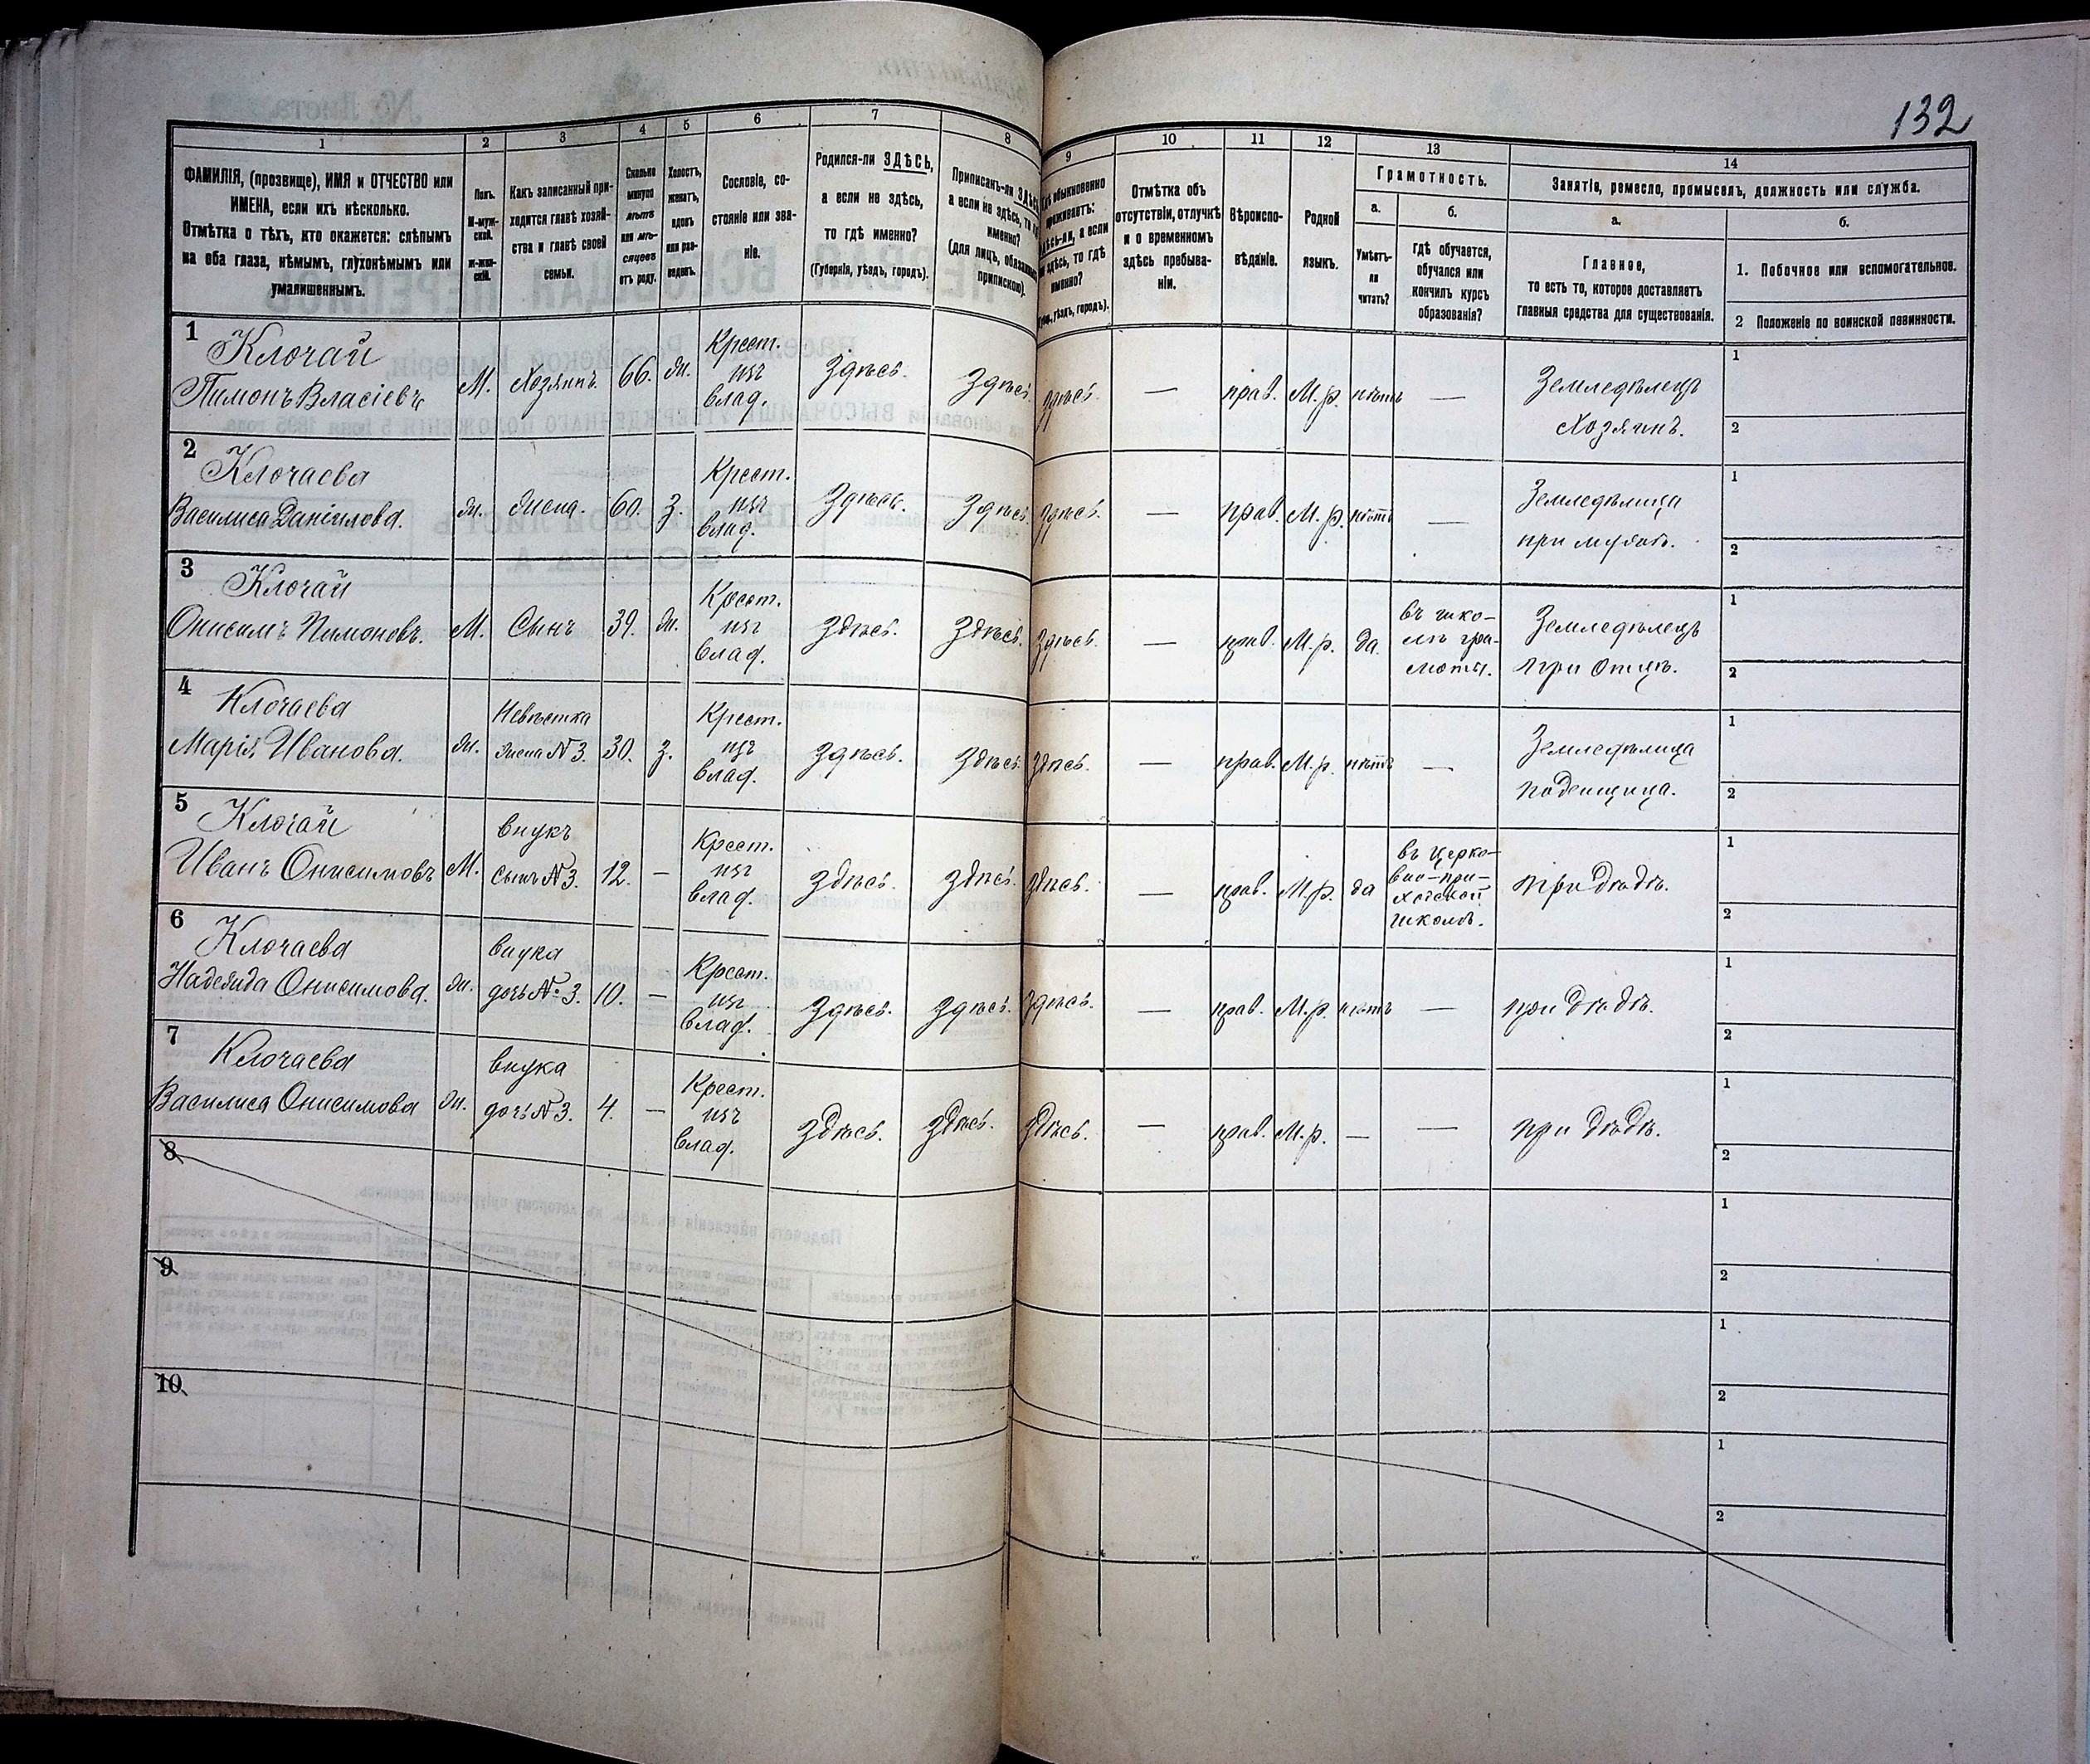 132
1
2
3
4
5
6
7
8
9
10
11
12
13
14
ФАМИЛІЯ, (прозвище), ИМЯ и ОТЧЕСТВО или
ИМЕНА, если ихъ нѣсколько.
Отмѣтка о тѣхъ, кто окажется: слѣпымъ
на оба глаза, нѣмымъ, глухонѣмымъ или
умалишеннымъ.
Полъ.
М-муж-
ской.
ж-жен-
скій.
Какъ записанный при-
ходится главѣ хозяй-
ства и главѣ своей
семьи.
Сколько
минуло
лѣтъ
или мѣ-
сяцевъ
отъ роду.
Холостъ,
женатъ,
вдовъ
или раз-
веденъ.
Сословіе, со-
стояніе или зва-
ніе.
Родился-ли ЗДѢСЬ,
а если не здѣсь,
то гдѣ именно?
(Губернія, уѣздъ, городъ).
Приписанъ-ли ЗДѢСЬ,
а если не здѣсь, то гдѣ
именно?
(для лицъ, обязанныхъ
припискою).
обыкновенно
проживаетъ:
здѣсь-ли, а если
не здѣсь, то гдѣ
именно?
уѣздъ, городъ).
Отмѣтка объ
отсутствіи, отлучкѣ
и о временномъ
здѣсь пребыва-
ніи.
Вѣроиспо-
вѣданіе.
Родной
языкъ.
Грамотность.
а.
Умѣетъ-
ли
читать?
б.
гдѣ обучается,
обучался или
кончилъ курсъ
образованія?
Занятіе, ремесло, промыселъ, должность или служба.
а.
Главное,
то есть то, которое доставляетъ
главныя средства для существованія.
б.
1. Побочное или вспомогательное.
2 Положеніе по воинской повинности.
1
Клочай
Пимонъ Власіевъ
М.
Хозяинъ
66.
ж.
Крест.
изъ
влад.
Здѣсь.
Здѣсь.
здѣсь.
—
прав.
М.р.
нѣтъ
—
Земледѣлецъ
Хозяинъ.
1
2
2
Клочаева
Василиса Даніилова.
ж.
жена.
60.
з.
Крест.
изъ
влад.
Здѣсь.
Здѣсь.
здѣсь.
—
прав.
М.р.
нѣтъ
—
Земледѣлица
при мужѣ.
1
2
3
Клочай
Онисимъ Пимоновъ.
М.
Сынъ
39.
ж.
Крест.
изъ
влад.
Здѣсь.
Здѣсь.
Здѣсь.
—
прав.
М.р.
да.
въ шко-
лѣ гра-
моты.
Земледѣлецъ
при отцѣ.
1
2
4
Клочаева
Марія Иванова.
ж.
Невѣстка
жена №3.
30.
з.
Крест.
изъ
влад.
Здѣсь.
Здѣсь.
Здѣсь.
—
прав.
М.р.
нѣтъ
—
Земледѣлица
поденщица.
1
2
5
Клочай
Иванъ Онисимовъ
М.
внукъ
сынъ №3.
12.
—
Крест.
изъ
влад.
Здѣсь.
Здѣсь.
здѣсь.
—
прав.
М.р.
да
въ церко-
вно-при-
ходской
школѣ.
при дѣдѣ.
1
2
6
Клочаева
Надежда Онисимова.
ж.
внука
дочь №3.
10.
—
Крест.
изъ
влад.
Здѣсь.
Здѣсь.
Здѣсь.
—
прав.
М.р.
нѣтъ
—
при дѣдѣ.
1
2
7
Клочаева
Василиса Онисимова
ж.
внука
дочь №3.
4.
—
Крест.
изъ
влад.
Здѣсь.
Здѣсь.
здѣсь.
—
прав.
М.р.
—
—
при дѣдѣ.
1
2
8
1
2
9
1
2
10
1
2